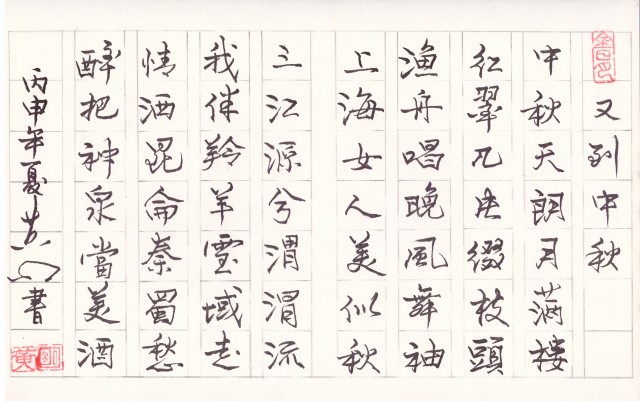 又到中秋
中秋天朗月滿樓
红翠几缀枝頭
渔舟唱晚風舞袖
上海女人美似秋
三江源兮渭渭流
我伴羚羊靈域走
情洒昆侖秦蜀愁
醉把神泉當美酒
丙申年夏書